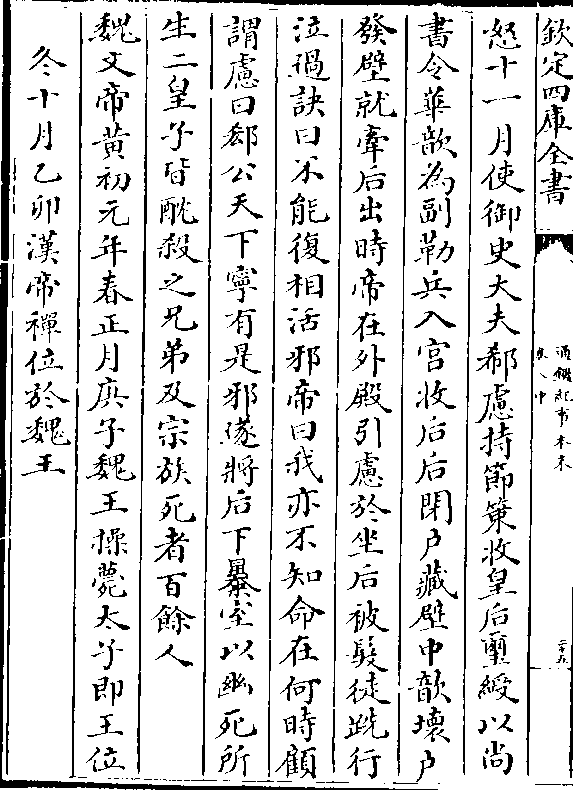 欽定四庫全書
通鑑紀事本末
卷八中
二十九
怒十一月使御史大夫郗慮持節策收皇后璽綬以尚
書令華歆為副勒兵入宮收后后閉戶藏壁中歆壞戶
發壁就牽后出時帝在外殿引慮於坐后被髮徒跣行
泣過訣曰不能復相活邪帝曰我亦不知命在何時顧
謂慮曰郗公天下寧有是邪遂將后下暴室以幽死所
生二皇子皆酖殺之兄弟及宗族死者百餘人
魏文帝黃初元年春正月庚子魏王操薨太子即王位
冬十月乙卯漢帝禪位於魏王